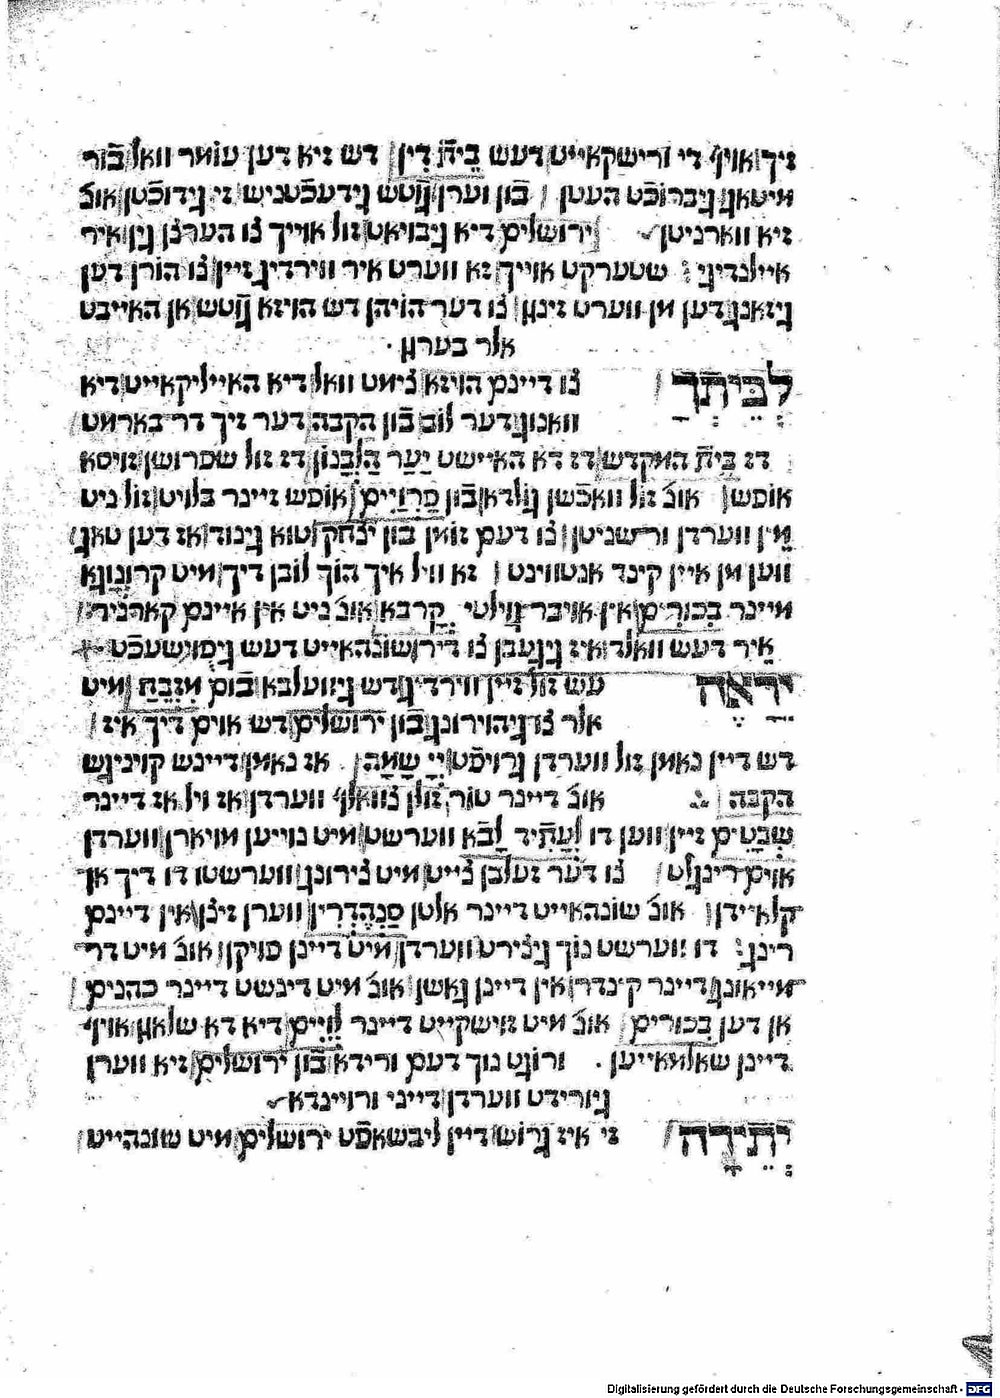 זיך אויף די ורישקאייט דעש בֵית דִין דש זיא דען עומר וואל בֿור
מיטאג גיברוֹכֿט העטן בֿון וערן גֿוֹטש גידעכֿטניש זי גידוכֿטן אונ׳
זיא ווארניטן ירושלים דיא גיבויאט זול אויך צו הערצן גין איר
איילנדיגי שטערקט אוייך זא ווערט איר ווירדיג זיין צו הורן דען
גיזאנג דען מן ווערט זינגן צו דער הויהן דש הויזא גֿוֹטש אן האייבט
אלר בערג
לְבֵיתְךָ צו דיינם הויזא צימט וואל דיא האייליקאייט דיא
וואנונג דער לוב בֿון הקבה דער זיך דר בארמט
דז בֵית המקדש דז דא האיישט יַעַר הַלְבָנוֹן דז זול שפרושן זויסא
אופש אונ׳ זול וואכֿשן גולדא בֿון פַרְוַיִים אופש זיינר בלויט זול ניט
מֵין ווערדן ור שניטן צו דעם זומן בֿון יצחק טוא גינוד אז דען טאג
ווען מן איין קינד אנטווינט זא וויל איך הוך לובן דיך מיט קרוננא
מיינר בִכורִים אין אויבר גוילטי קָרבא אונ׳ ניט אין איינם קארניר
איר דעש וואלד איז גיגעבן צו דיר שונהאייט דעש גיפוישעכֿט
יִרְאֶה עש זול זיין ווירדיג דש גיוועלבא בֿום מִזְבֵחַ מיט
אלר צו גיהוירונג בֿון ירושלים דש אוים דיך איז
דש דיין נאמן זול ווערדן גרויסט יְיָ שָמָה אז נאמן דיינש קויניגש
הקבה אונ׳ דיינר טור זולן צוואלף ווערדן אז ויל אז דיינר
שְבָטִים זיין ווען דו לֶעָתִיד לָבֿא ווערשט מיט נוייען מויארן ווערדן
אוים רינגלט צו דער זעלבן צייט מיט צירונג ווערשטו דו דיך אן
קלאיידן אונ׳ שונהאייט דיינר אלטן סַנְהֶדְרִין ווערן זיצן אין דיינם
רינג דו ווערשט נוך גיצירט ווערדן מיט דיינן פויקן אונ׳ מיט דר
מייאונג דיינר קינדר אין דיינן גאשן אונ׳ מיט דינשט דיינר כהנים
אן דען בִכוּרים אונ׳ מיט זוישקייט דיינר לְוִיִים דיא דא שלאגן אויף
דיינן שאלמאייען ורוגט נוך דעם ורידא בֿון ירושלים זיא ווערן
גיורידט ווערדן דייני ורויינדא
יְתֵירָה זי איז גרוש דיין ליבשאפֿט ירושלים מיט שונהייט
Digitalisierung gefördert durch die Deutsche Forschungsgemeinschaft - DFG